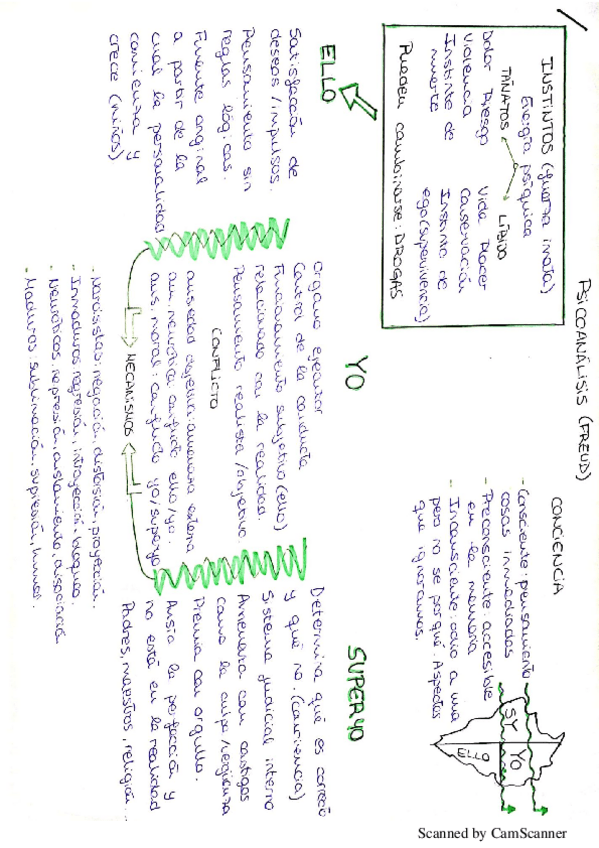 PSICOANÁLISIS (FREUD)
INSTINTOS (fuerza innata)
Energía psíquica
TÁNATOS
LÍBIDO
Dolor Riesgo
Violencia
Instinto de
muerte
Vida Placer
Conservación
Instinto de
ego (supervivencia)
Pueden combinarse: DROGAS
CONCIENCIA
- Consciente: pensamiento
cosas inmediatas
- Preconsciente: accesible
en la memoria
- Inconsciente: odio a una
pero no se por qué. Aspectos
que ignoramos.
SY
YO
ELLO
ELLO
Satisfacción de
deseos / impulsos.
Pensamiento sin
reglas lógicas.
Fuente original
a partir de la
cual la personalidad
comienza y
crece (niños)
YO
Organo ejecutor
Control de la conducta
Funcionamiento subjetivo (ello)
relacionado con la realidad.
Pensamiento realista / objetivo
CONFLICTO
ansiedad objetiva: amenaza externa
ans. neurótica: conflicto ello / yo.
ans. moral: conflicto yo / superyo
SUPERYO
Determina qué es correcto
y qué no. (conciencia)
Sistema judicial interno
Amenaza con castigos
como la culpa / vergüenza
Premia con orgullo.
Ansia la perfección y
no está en la realidad
Padres, maestros, religión...
MECANISMOS
- Narcisistas: negación, distorsión, proyección.
- Inmaduros: regresión, introyección, bloqueo.
- Neuróticos: represión, aislamiento, disociación
- Maduros: sublimación, supresión, humor.
Scanned by CamScanner